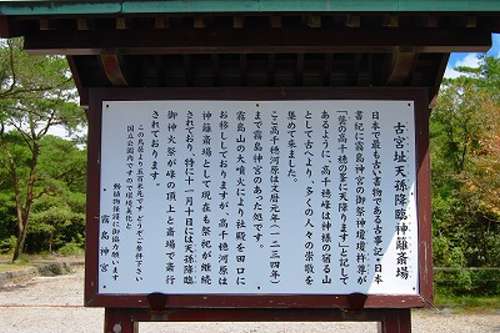 古宮址天孫降臨神籬斎場
日本で最も古い書物である古事記・日本
書紀に霧島神宮の御祭神瓊瓊杵尊が
「筑の高千穂の峯に天降ります」と記して
あるように、高千穂峰は神様の宿る山
として古へより、多くの人々の崇敬を
集めて来ました。
ここ高千穂河原は文暦元年(一二三四年)
まで霧島神宮のあった処です。
霧島山の大噴火により社殿を田口に
お移ししておりますが、高千穂河原は
神籬斎場として現在も祭祀が継続
されており、特に十一月十日には天孫降臨
御神火祭が峰の頂上と斎場で斎行
されております。
この鳥居より五百米先です どうぞご参拝下さい
国立公園内ですので環境美化と
動植物保護に御協力願います
霧島神宮